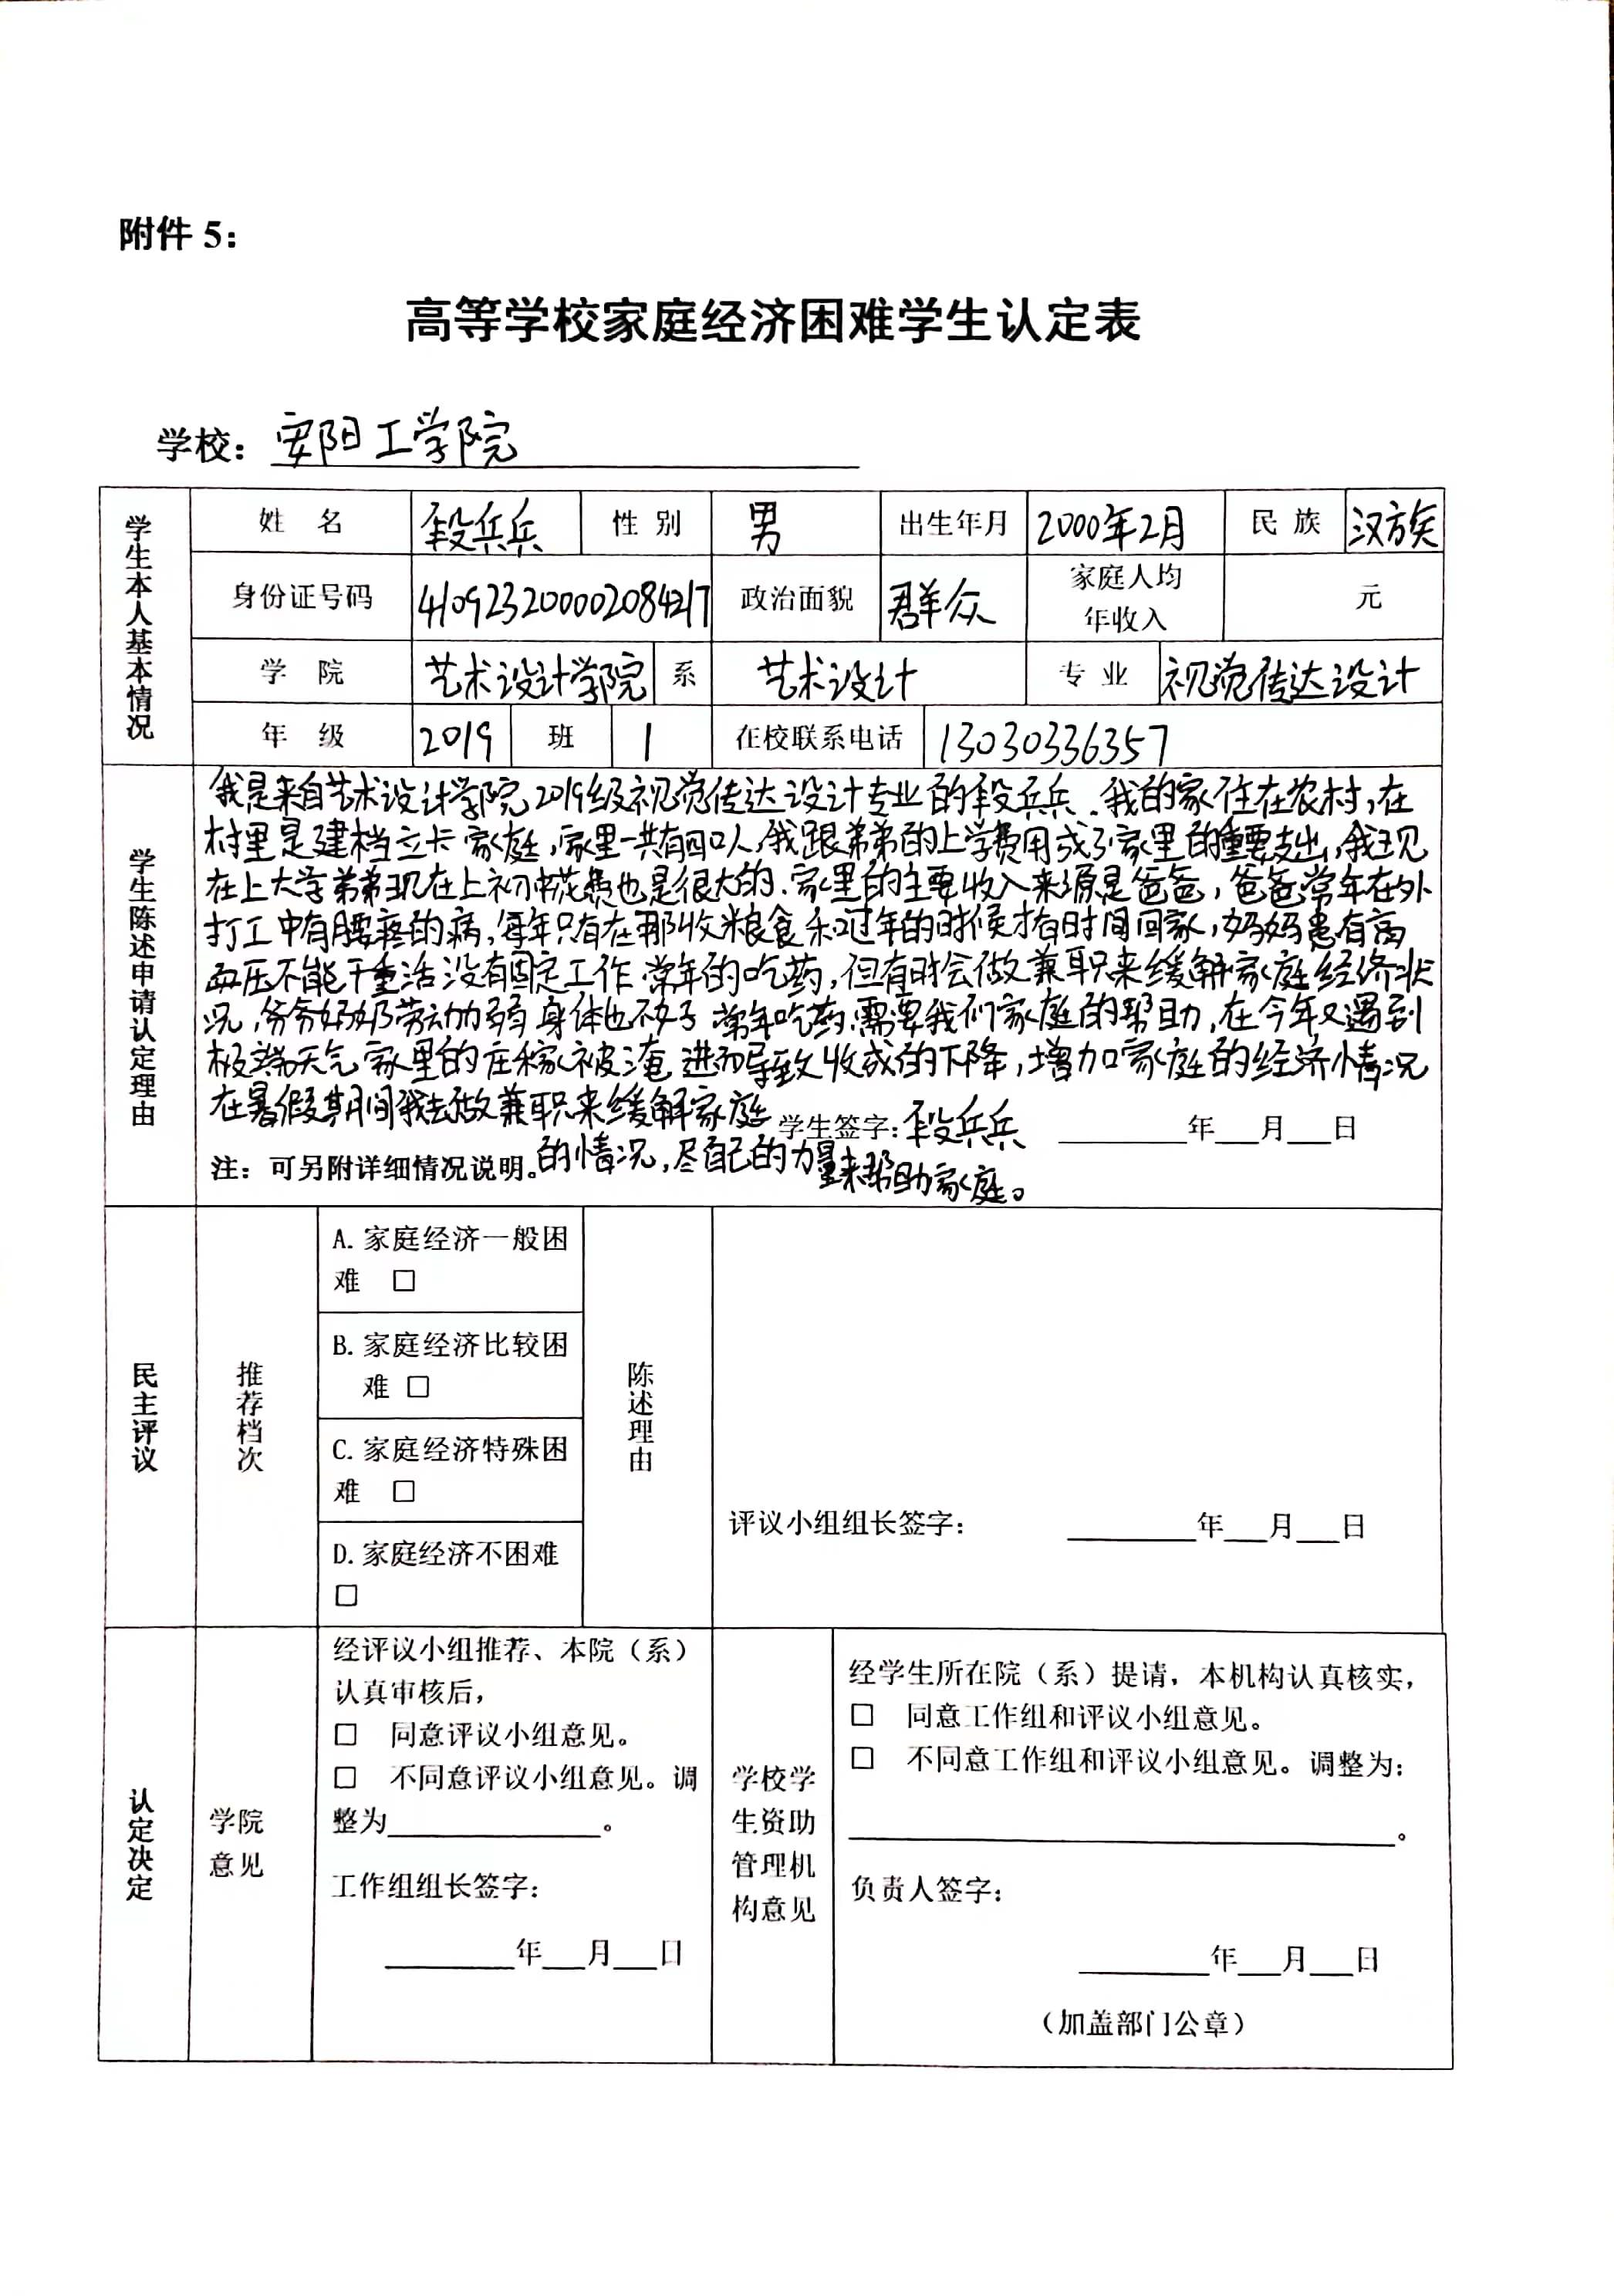 附件 5：
高等学校家庭经济困难学生认定表
学校：安阳工学院
学生本人基本情况
姓 名 段兵兵 性 别 男 出生年月 2000年2月 民 族 汉族
身份证号码 410923200002084217 政治面貌 群众 家庭人均年收入 元
学 院 艺术设计学院 系 艺术设计 专 业 视觉传达设计
年 级 2019 班 1 在校联系电话 13030336357
学生陈述申请认定理由
我是来自艺术设计学院2019级视觉传达设计专业的段兵兵．我的家住在农村,在
村里是建档立卡家庭,家里一共有四口人,我跟弟弟的上学费用成了家里的重要支出,我现
在上大学弟弟现在上初中花费也是很大的.家里的主要收入来源是爸爸，爸爸常年在外
打工中有腰疼的病,每年只有在那收粮食和过年的时候才有时间回家,妈妈患有高
血压不能干重活没有固定工作 常年的吃药，但有时会做兼职来缓解家庭经济状
况,爷爷奶奶劳动力弱 身体也不好 常年吃药.需要我们家庭的帮助,在今年又遇到
极端天气 家里的庄稼被淹 进而导致收成的下降，增加家庭的经济情况
在暑假期间我去做兼职来缓解家庭
学生签字：段兵兵 年 月 日
注：可另附详细情况说明。
的情况,尽自己的力量来帮助家庭。
民主评议
推荐档次
A. 家庭经济一般困
难 □
B. 家庭经济比较困
难 □
C. 家庭经济特殊困
难 □
D. 家庭经济不困难
□
陈述理由
评议小组组长签字： 年 月 日
认定决定
学院
意见
经评议小组推荐、本院（系）
认真审核后，
□ 同意评议小组意见。
□ 不同意评议小组意见。调
整为 。
工作组组长签字：
年 月 日
学校学
生资助
管理机
构意见
经学生所在院（系）提请，本机构认真核实，
□ 同意工作组和评议小组意见。
□ 不同意工作组和评议小组意见。调整为：
。
负责人签字：
年 月 日
（加盖部门公章）